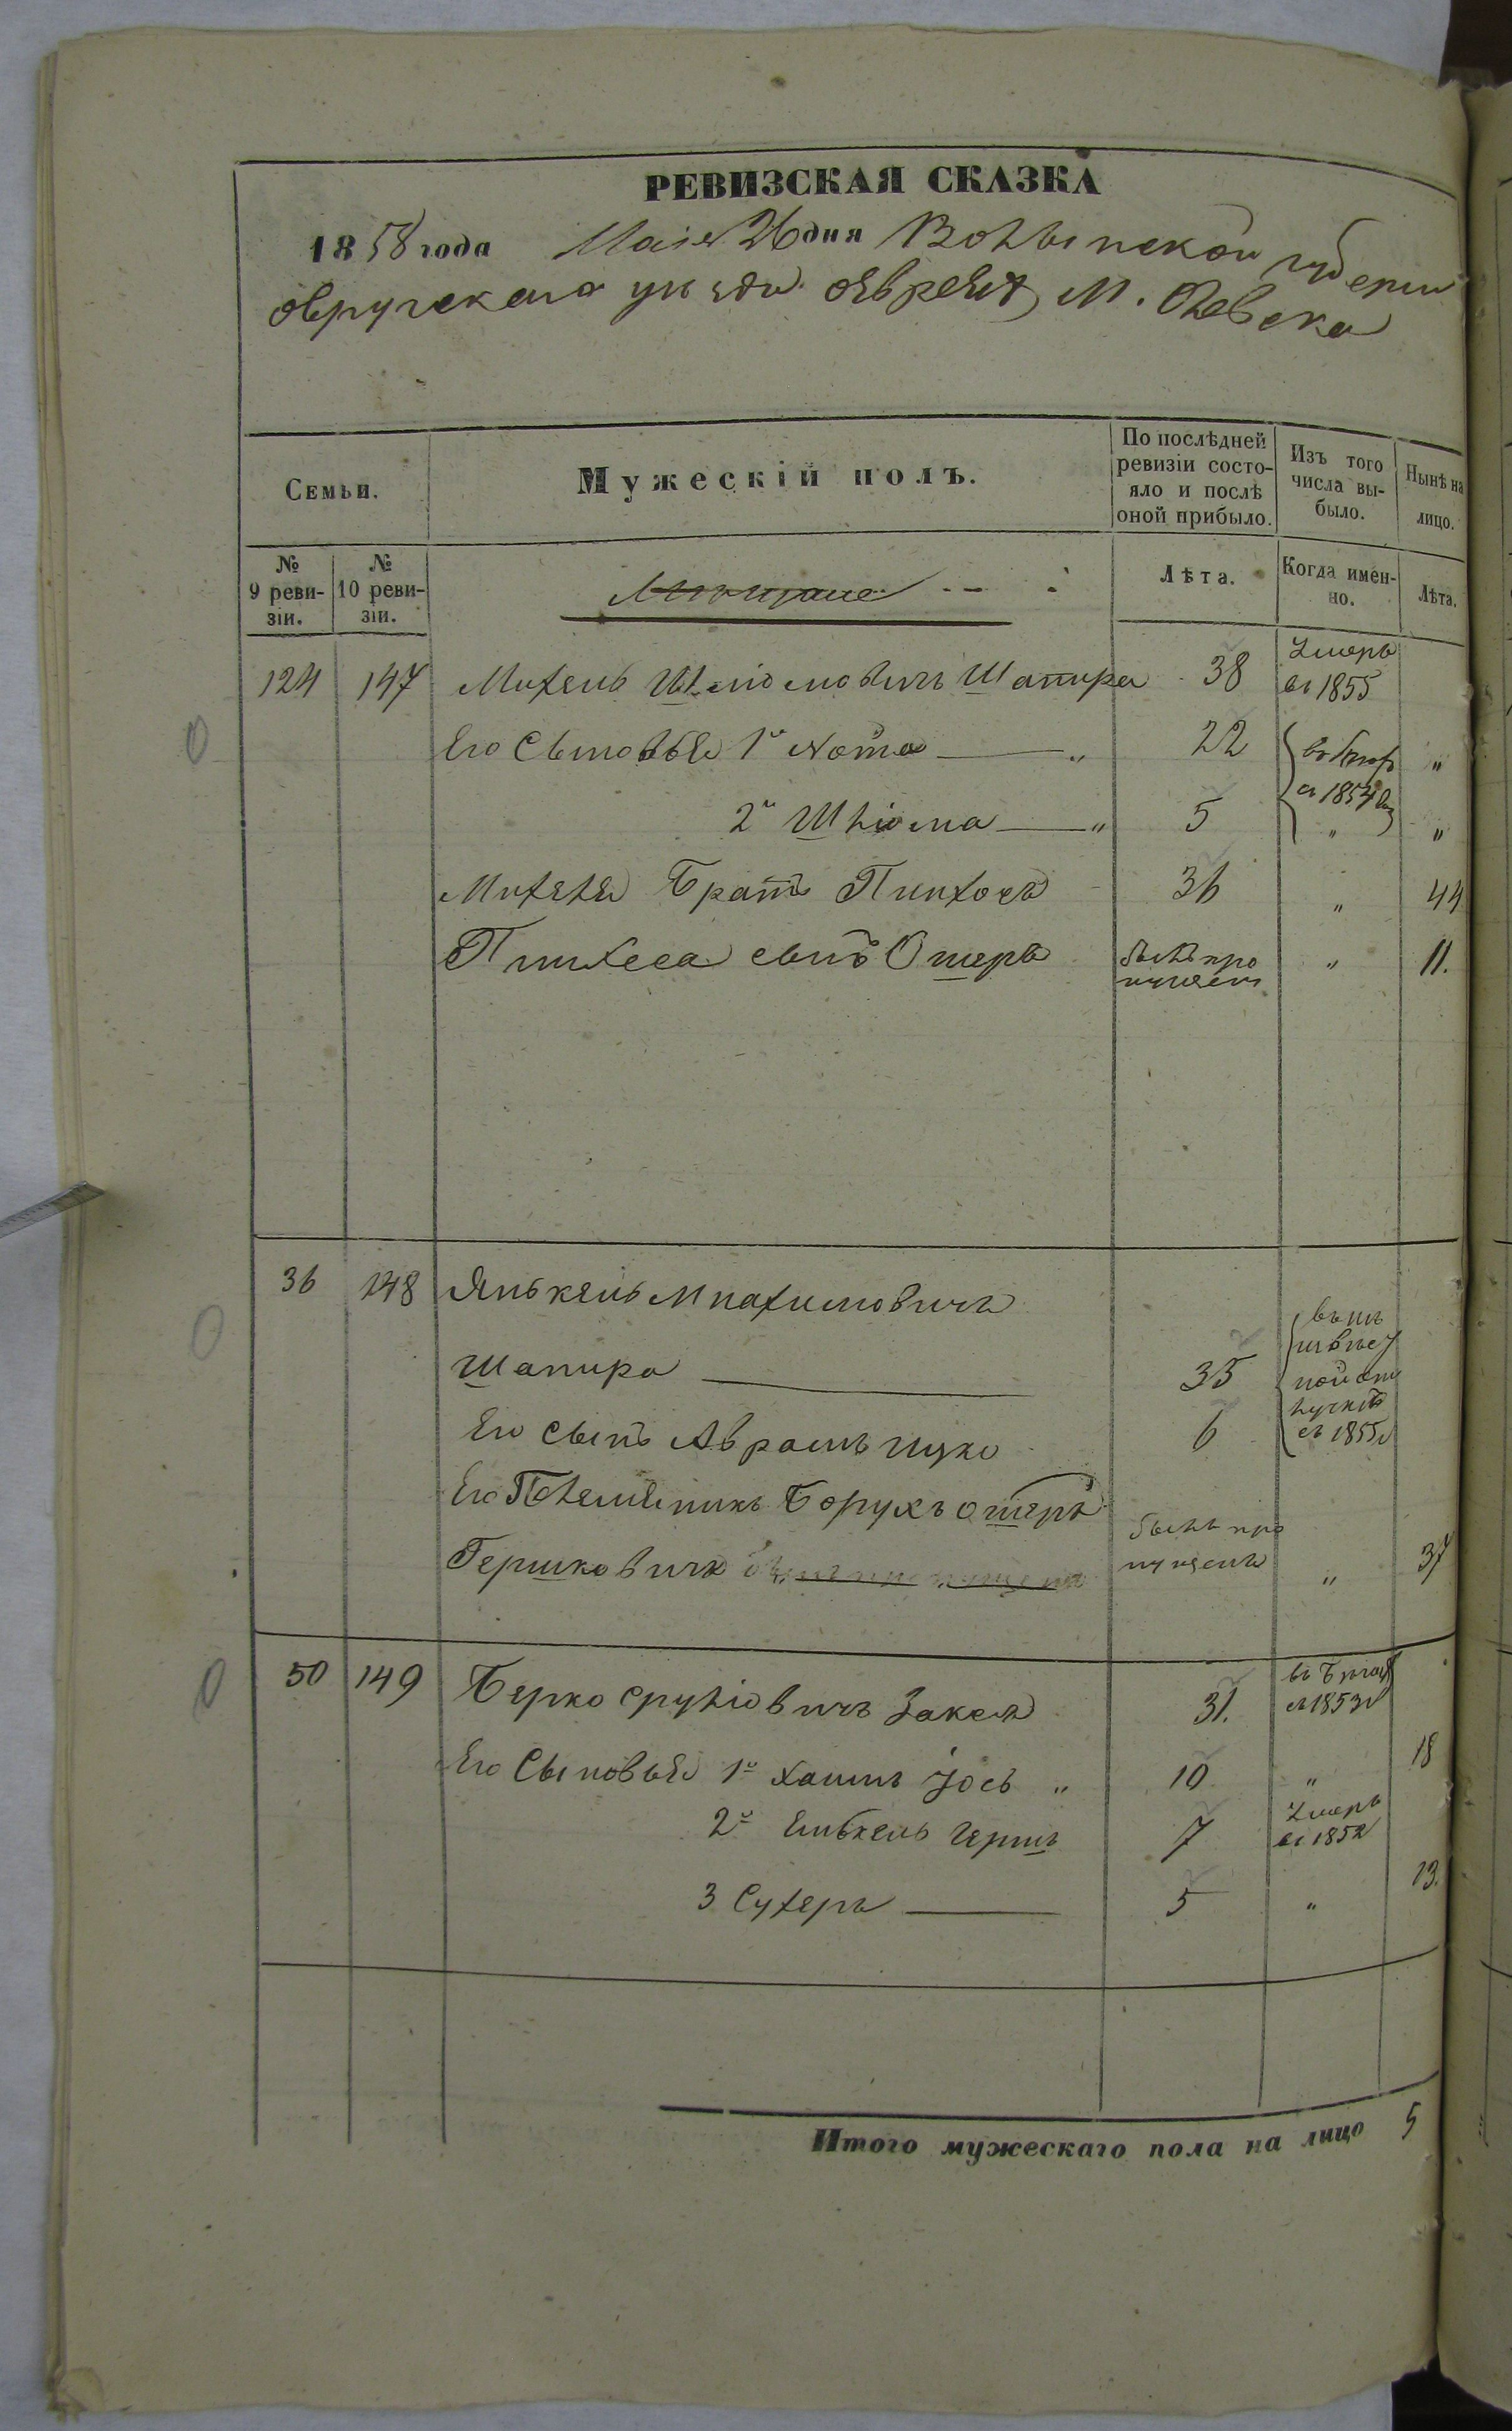 РЕВИЗСКАЯ СКАЗКА
1858 года Маія 26 дня Волынской губерніи
овручскаго уѣзда евреевъ м. Олевска
Семьи.
Мужескій полъ.
По послѣдней ревизіи состо-
яло и послѣ
оной прибыло.
Изъ того
числа вы-
было.
Нынѣ на
лицо.
№
9 реви-
зіи.
№
10 реви-
зіи.
Мѣщане
Лѣта.
Когда имен-
но.
Лѣта.
124 147 Михель Шліомовичъ Шапира 38 Умеръ
въ 1855
Его Сыновья 1й Нота — " 22 "
съ 1854
2й Шліома — " 5 " "
Михеля Братъ Пинхосъ 36 " 44
Пинхеса сынъ Ошеръ былъ про " 11.
пущенъ
36 148 Янькель Мнахимовичъ
Шапиро 35
Его сынъ Аврамъ Ицко 6 съ 1855
Его Племянникъ Борухъ Ошеръ
Гершковичъ былъ пропущенъ былъ про
пущенъ " 37
50 149 Берко Срулiовичъ Заксъ 31. съ 1853
Его Сыновья 1й Хаимъ Іось " 10 " 18
2й Янькель Гершъ 7 Умеръ
въ 1852
3 Сухеръ — 5 " 13.
Итого мужескаго пола на лицо 5